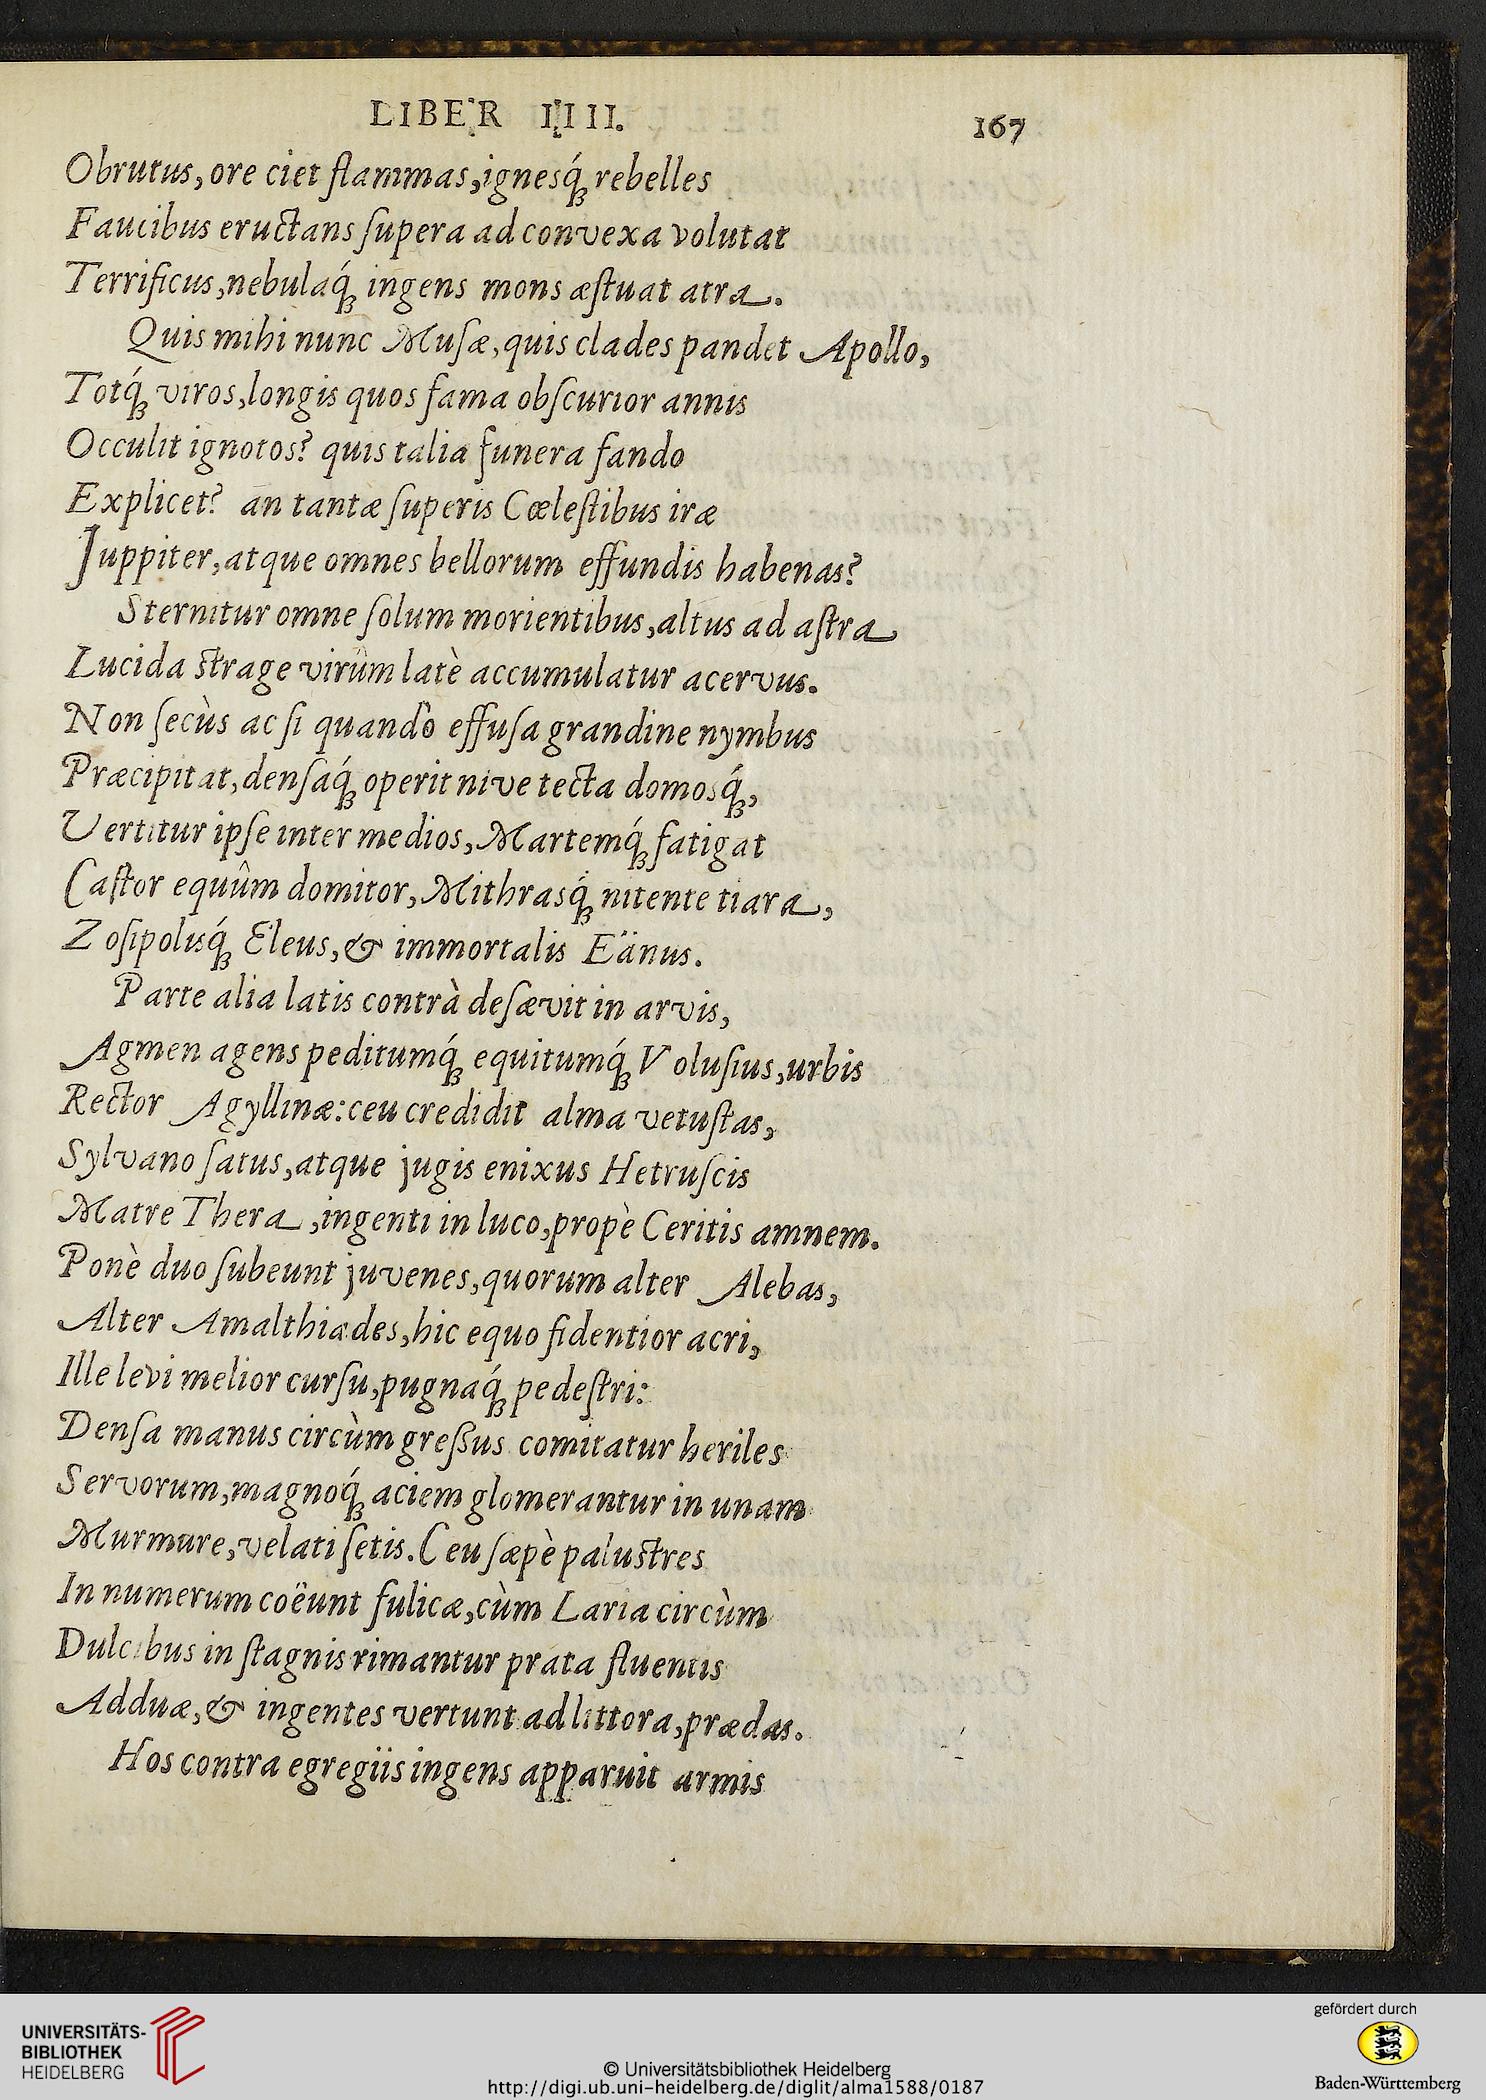 LIBER IIII. 167
Obrutus, ore ciet flammas, ignesq́ꝫ rebelles
Faucibus eructans ſupera ad convexa volutat
Terrificus, nebulaq́ꝫ ingens mons æſtuat atra.
Quis mihi nunc Muſæ, quis clades pandet Apollo,
Totq́ꝫ viros, longis quos fama obſcurior annis
Occulit ignotos? quis talia funera fando
Explicet? an tantæ ſuperis Cœleſtibus iræ
Juppiter, atque omnes bellorum effundis habenas?
Sternitur omne ſolum morientibus, altus ad aſtra
Lucida strage virûm latè accumulatur acervus.
Non ſecùs ac ſi quando effuſa grandine nymbus
Præcipitat, denſaq́ꝫ operit nive tecta domosq́ꝫ,
Vertitur ipſe inter medios, Martemq́ꝫ fatigat
Caſtor equûm domitor, Mithrasq́ꝫ nitente tiara,
Zoſipolisq́ꝫ Eleus, & immortalis Eänus.
Parte alia latis contrà deſævit in arvis,
Agmen agens peditumq́ꝫ equitumq́ꝫ Voluſius, urbis
Rector Agyllinæ: ceu credidit alma vetuſtas,
Sylvano ſatus, atque jugis enixus Hetruſcis
Matre Thera, ingenti in luco, propè Ceritis amnem.
Ponè duo ſubeunt juvenes, quorum alter Alebas,
Alter Amalthiades, hic equo fidentior acri,
Ille levi melior curſu, pugnaq́ꝫ pedeſtri:
Denſa manus circùm greßus comitatur heriles
Servorum, magnoq́ꝫ aciem glomerantur in unam
Murmure, velati ſetis. Ceu ſæpè palustres
In numerum coëunt fulicæ, cùm Laria circùm
Dulcibus in ſtagnis rimantur prata fluentis
Adduæ, & ingentes vertunt ad littora, prædas.
Hos contra egregiis ingens apparuit armis
UNIVERSITÄTS-
BIBLIOTHEK
HEIDELBERG
© Universitätsbibliothek Heidelberg
http://digi.ub.uni-heidelberg.de/diglit/alma1588/0187
gefördert durch
Baden-Württemberg